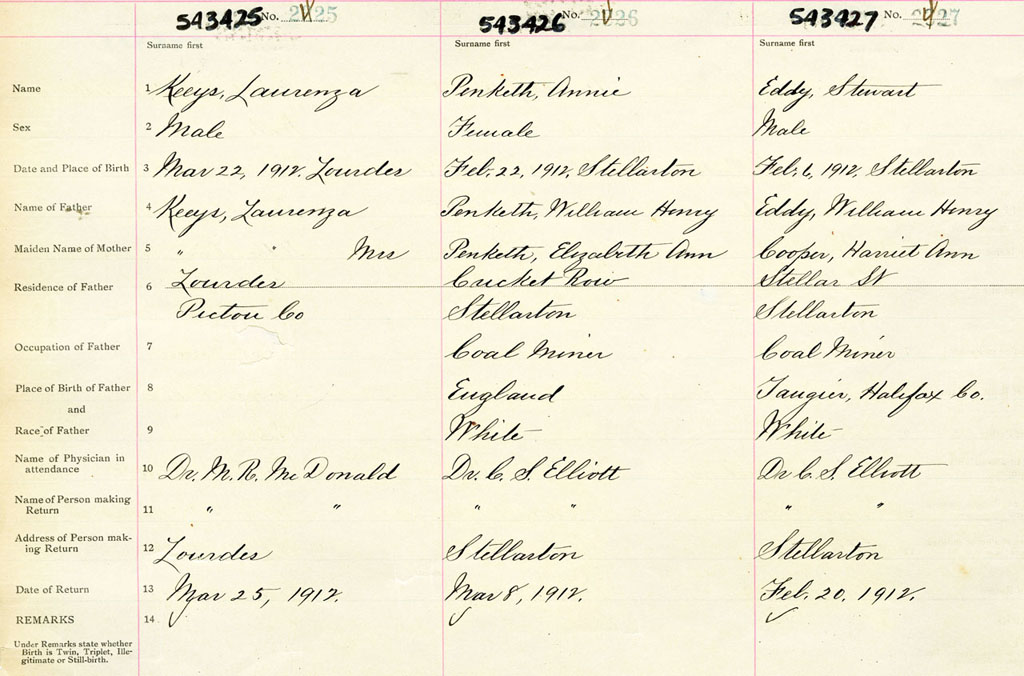 543425 No. 2025 543426 No. 2026 543427 No. 2027
Surname first Surname first Surname first
Name 1 Keeys, Laurenza Penketh, Annie Eddy, Stewart
Sex 2 Male Female Male
Date and Place of Birth 3 Mar 22, 1912. Lourdes Feb. 22, 1912, Stellarton Feb. 6, 1912, Stellarton
Name of Father 4 Keeys, Laurenza Penketh, William Henry Eddy, William Henry
Maiden Name of Mother 5 " " Mrs Penketh, Elizabeth Ann Cooper, Harriet Ann
Residence of Father 6 Lourdes Cricket Row Stellar St
Pictou Co Stellarton Stellarton
Occupation of Father 7 Coal Miner Coal Miner
Place of Birth of Father 8 England Tangier, Halifax Co.
and
Race of Father 9 White White
Name of Physician in
attendance 10 Dr. M. R. McDonald Dr. C. S. Elliott Dr C. S. Elliott
Name of Person making
Return 11 " " " " " "
Address of Person mak-
ing Return 12 Lourdes Stellarton Stellarton
Date of Return 13 Mar 25, 1912. Mar 8, 1912. Feb. 20, 1912.
REMARKS 14
Under Remarks state whether
Birth is Twin, Triplet, Ille-
gitimate or Still-birth.